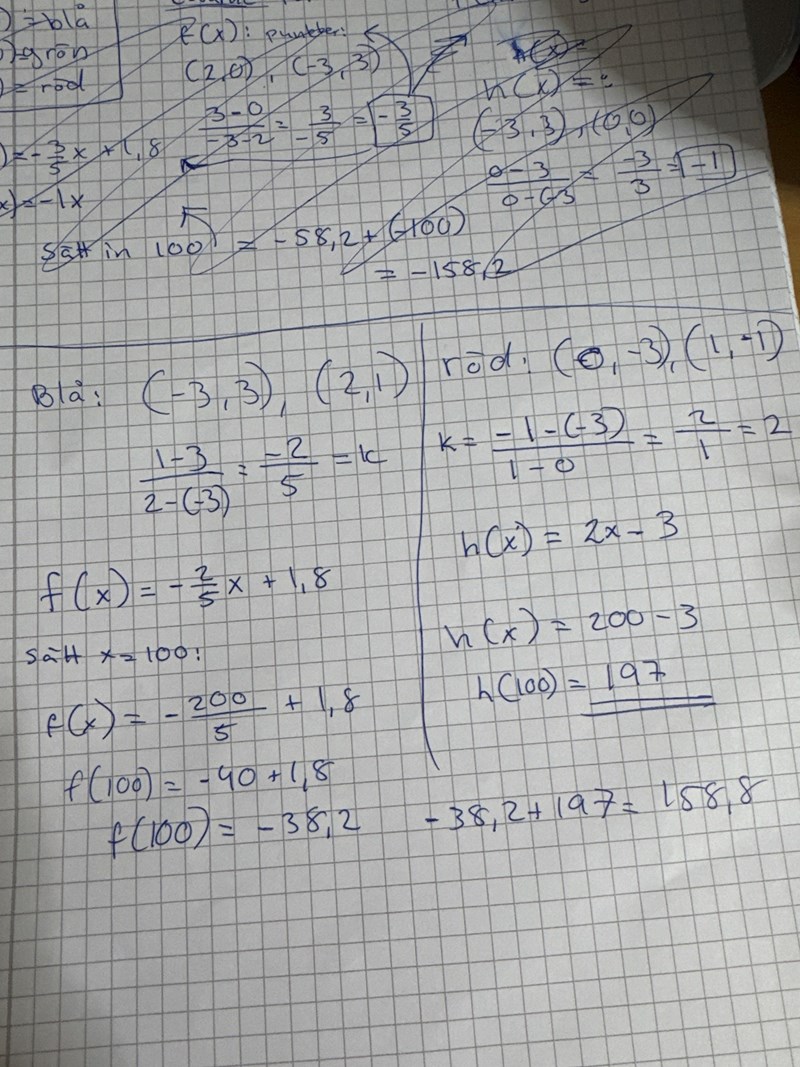 ) = blå
) = grön
) = röd
f(x): punkter:
(2,0), (-3,3)
\frac{3-0}{-3-2} = \frac{3}{-5} = -\frac{3}{5}
h(x) = :
(-3,3), (0,0)
\frac{0-3}{0-(-3} = \frac{-3}{3} = -1
) = -\frac{3}{5}x + 1,8
x) = -1x
Sätt in 100 = -58,2 + (-100)
= -158,2
Blå: (-3,3), (2,1)
\frac{1-3}{2-(-3)} = \frac{-2}{5} = k
f(x) = -\frac{2}{5}x + 1,8
Sätt x=100:
f(x) = -\frac{200}{5} + 1,8
f(100) = -40 + 1,8
f(100) = -38,2
röd: (0,-3), (1,-1)
k = \frac{-1-(-3)}{1-0} = \frac{2}{1} = 2
h(x) = 2x - 3
h(x) = 200 - 3
h(100) = 197
-38,2 + 197 = 158,8